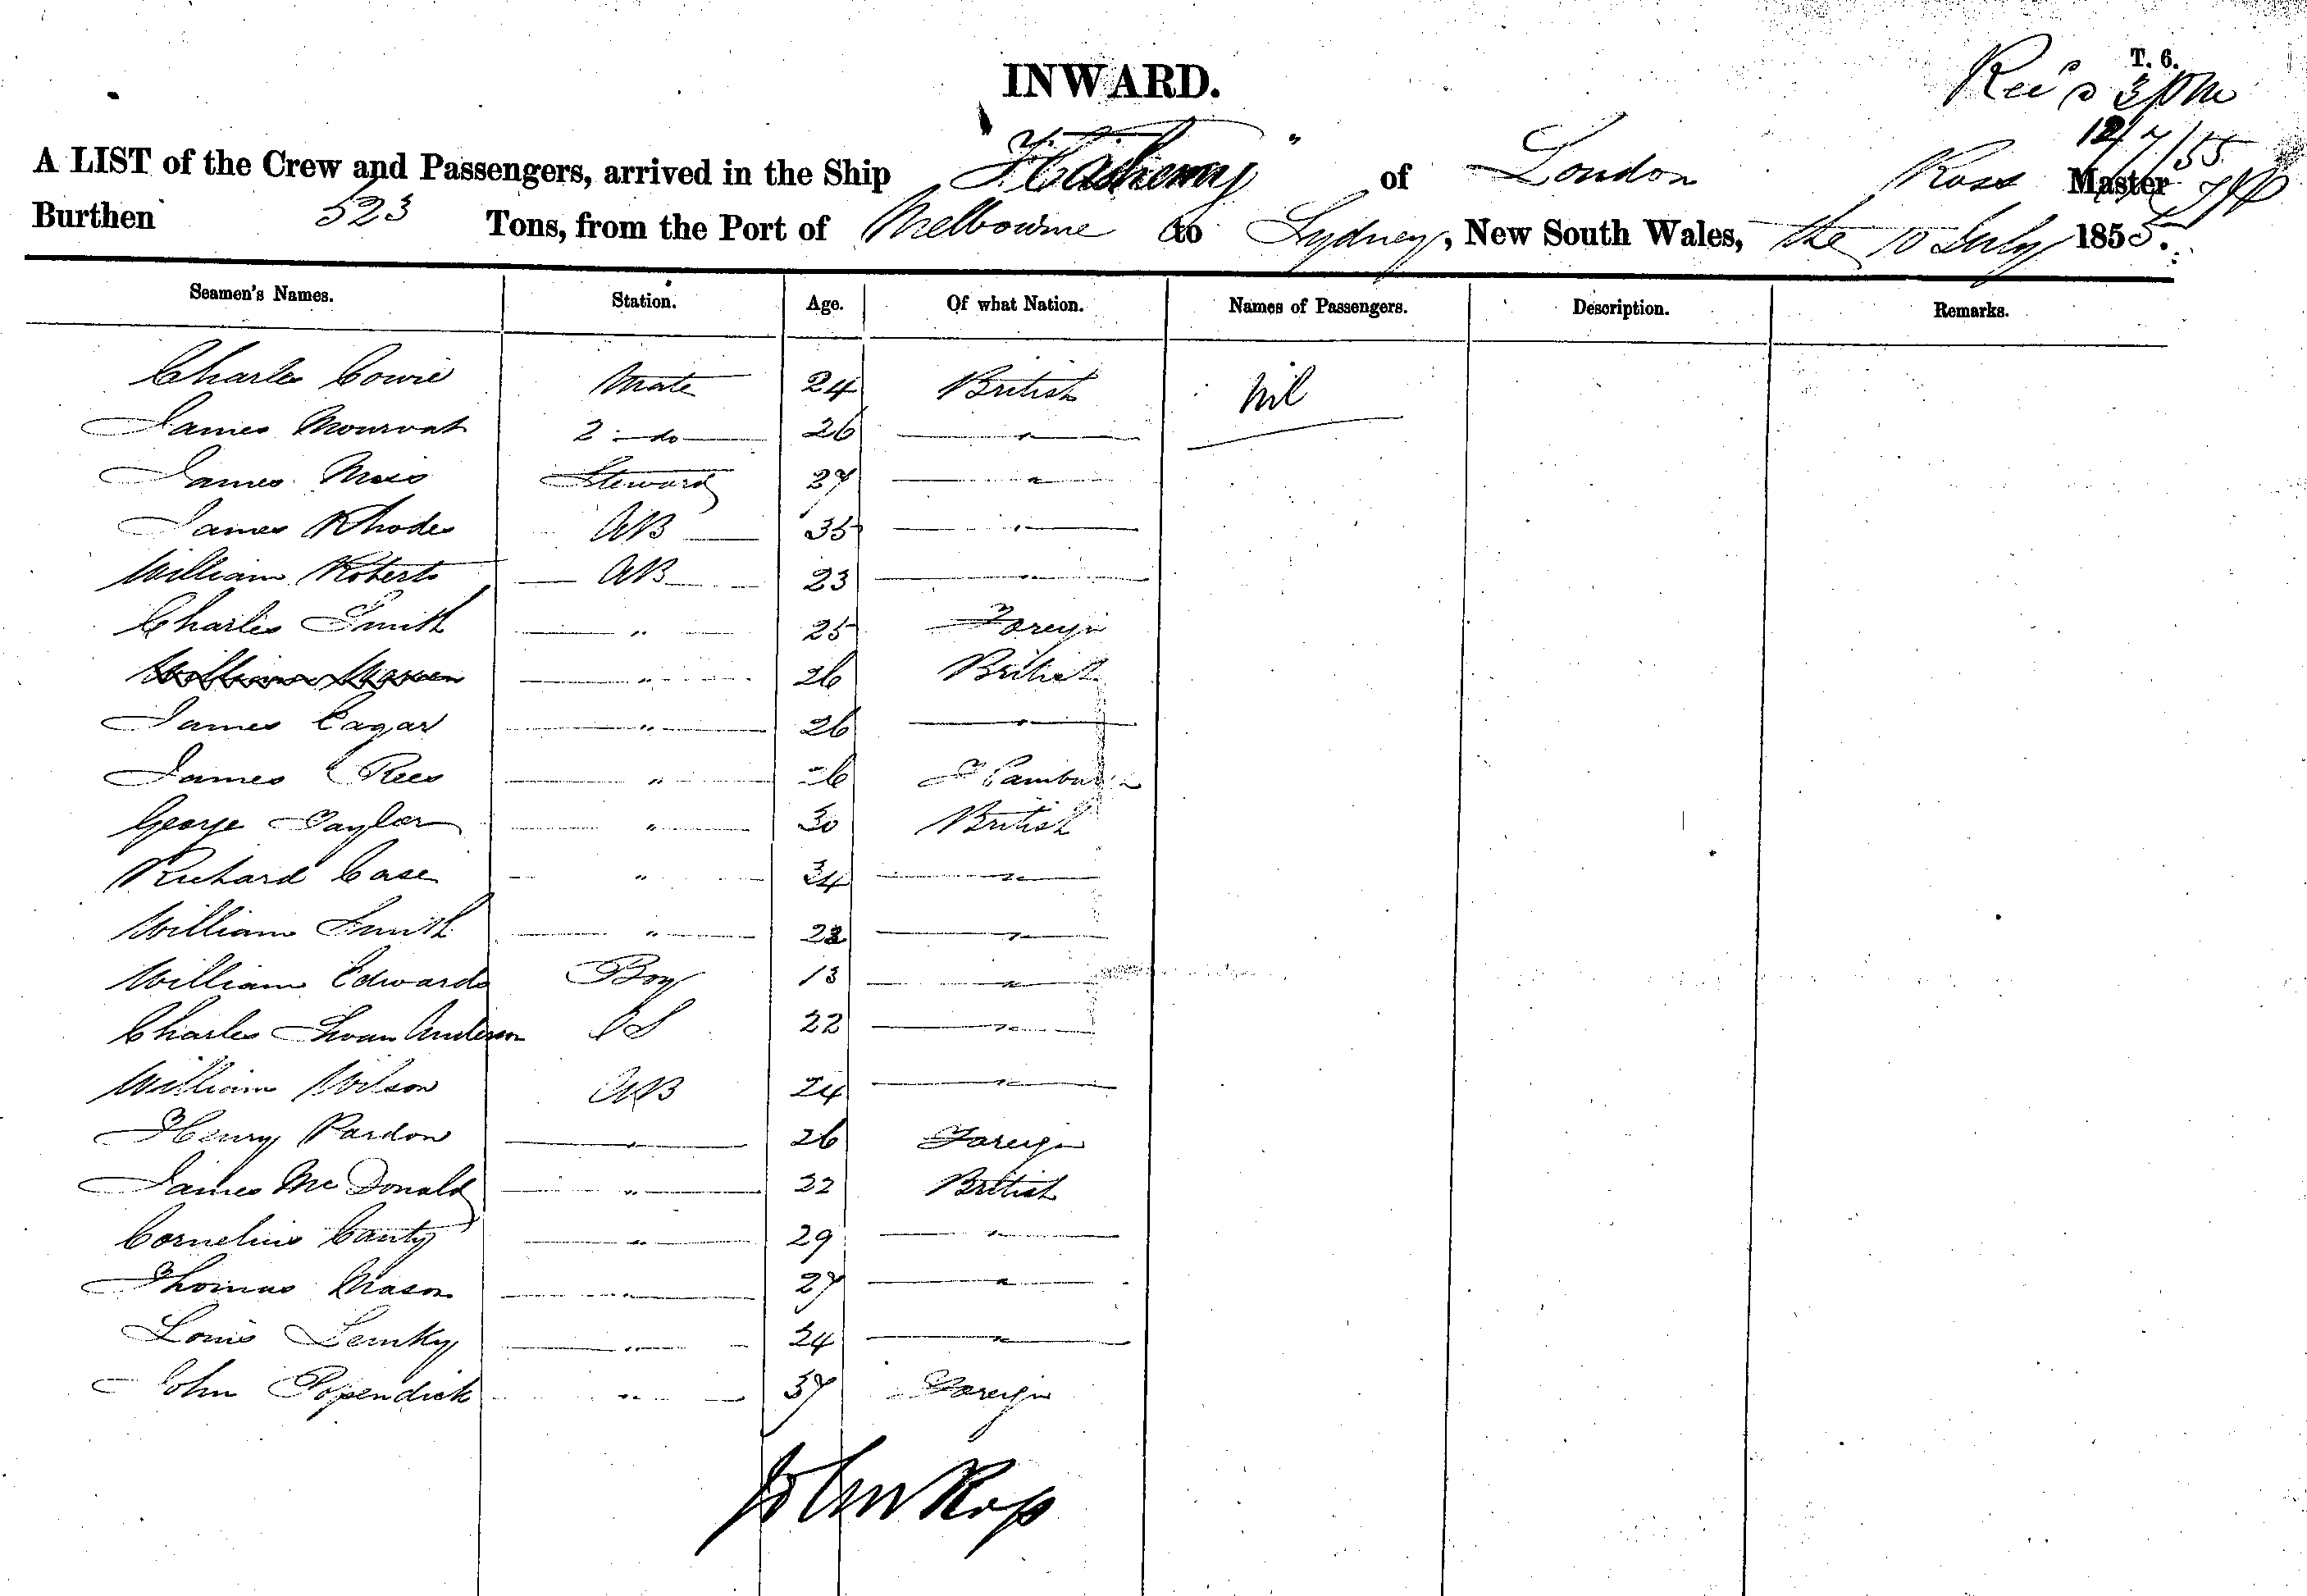 INWARD.
T. 6.
3 PM
12/7/55
A LIST of the Crew and Passengers, arrived in the Ship " Hashemy " of London Ross Master
Burthen 523 Tons, from the Port of Melbourne to Sydney, New South Wales, the 10 July 1855.
Seamen's Names. Station. Age. Of what Nation. Names of Passengers. Description. Remarks.
Charles Cowie Mate 24 British Nil
James Mourvat 2 do 26 "
James Mais Steward 27 "
James Rhodes AB 35 "
William Roberts AB 23 "
Charles Smith " 25 Foreign
William " 26 British
James Eagar " 26 "
James Rees " 26 Hamburg
George Taylor " 30 British
Richard Case " 34 "
William Smith " 22 "
William Edwards Boy 13 "
Charles Swan Anderson OS 22 "
William Wilson AB 24 "
Henry Pardon " 26 Foreign
James McDonald " 22 British
Cornelius Canty " 29 "
Thomas Mason " 27 "
Louis Lemky " 24 "
John Popendick " 37 Foreign
John Ross